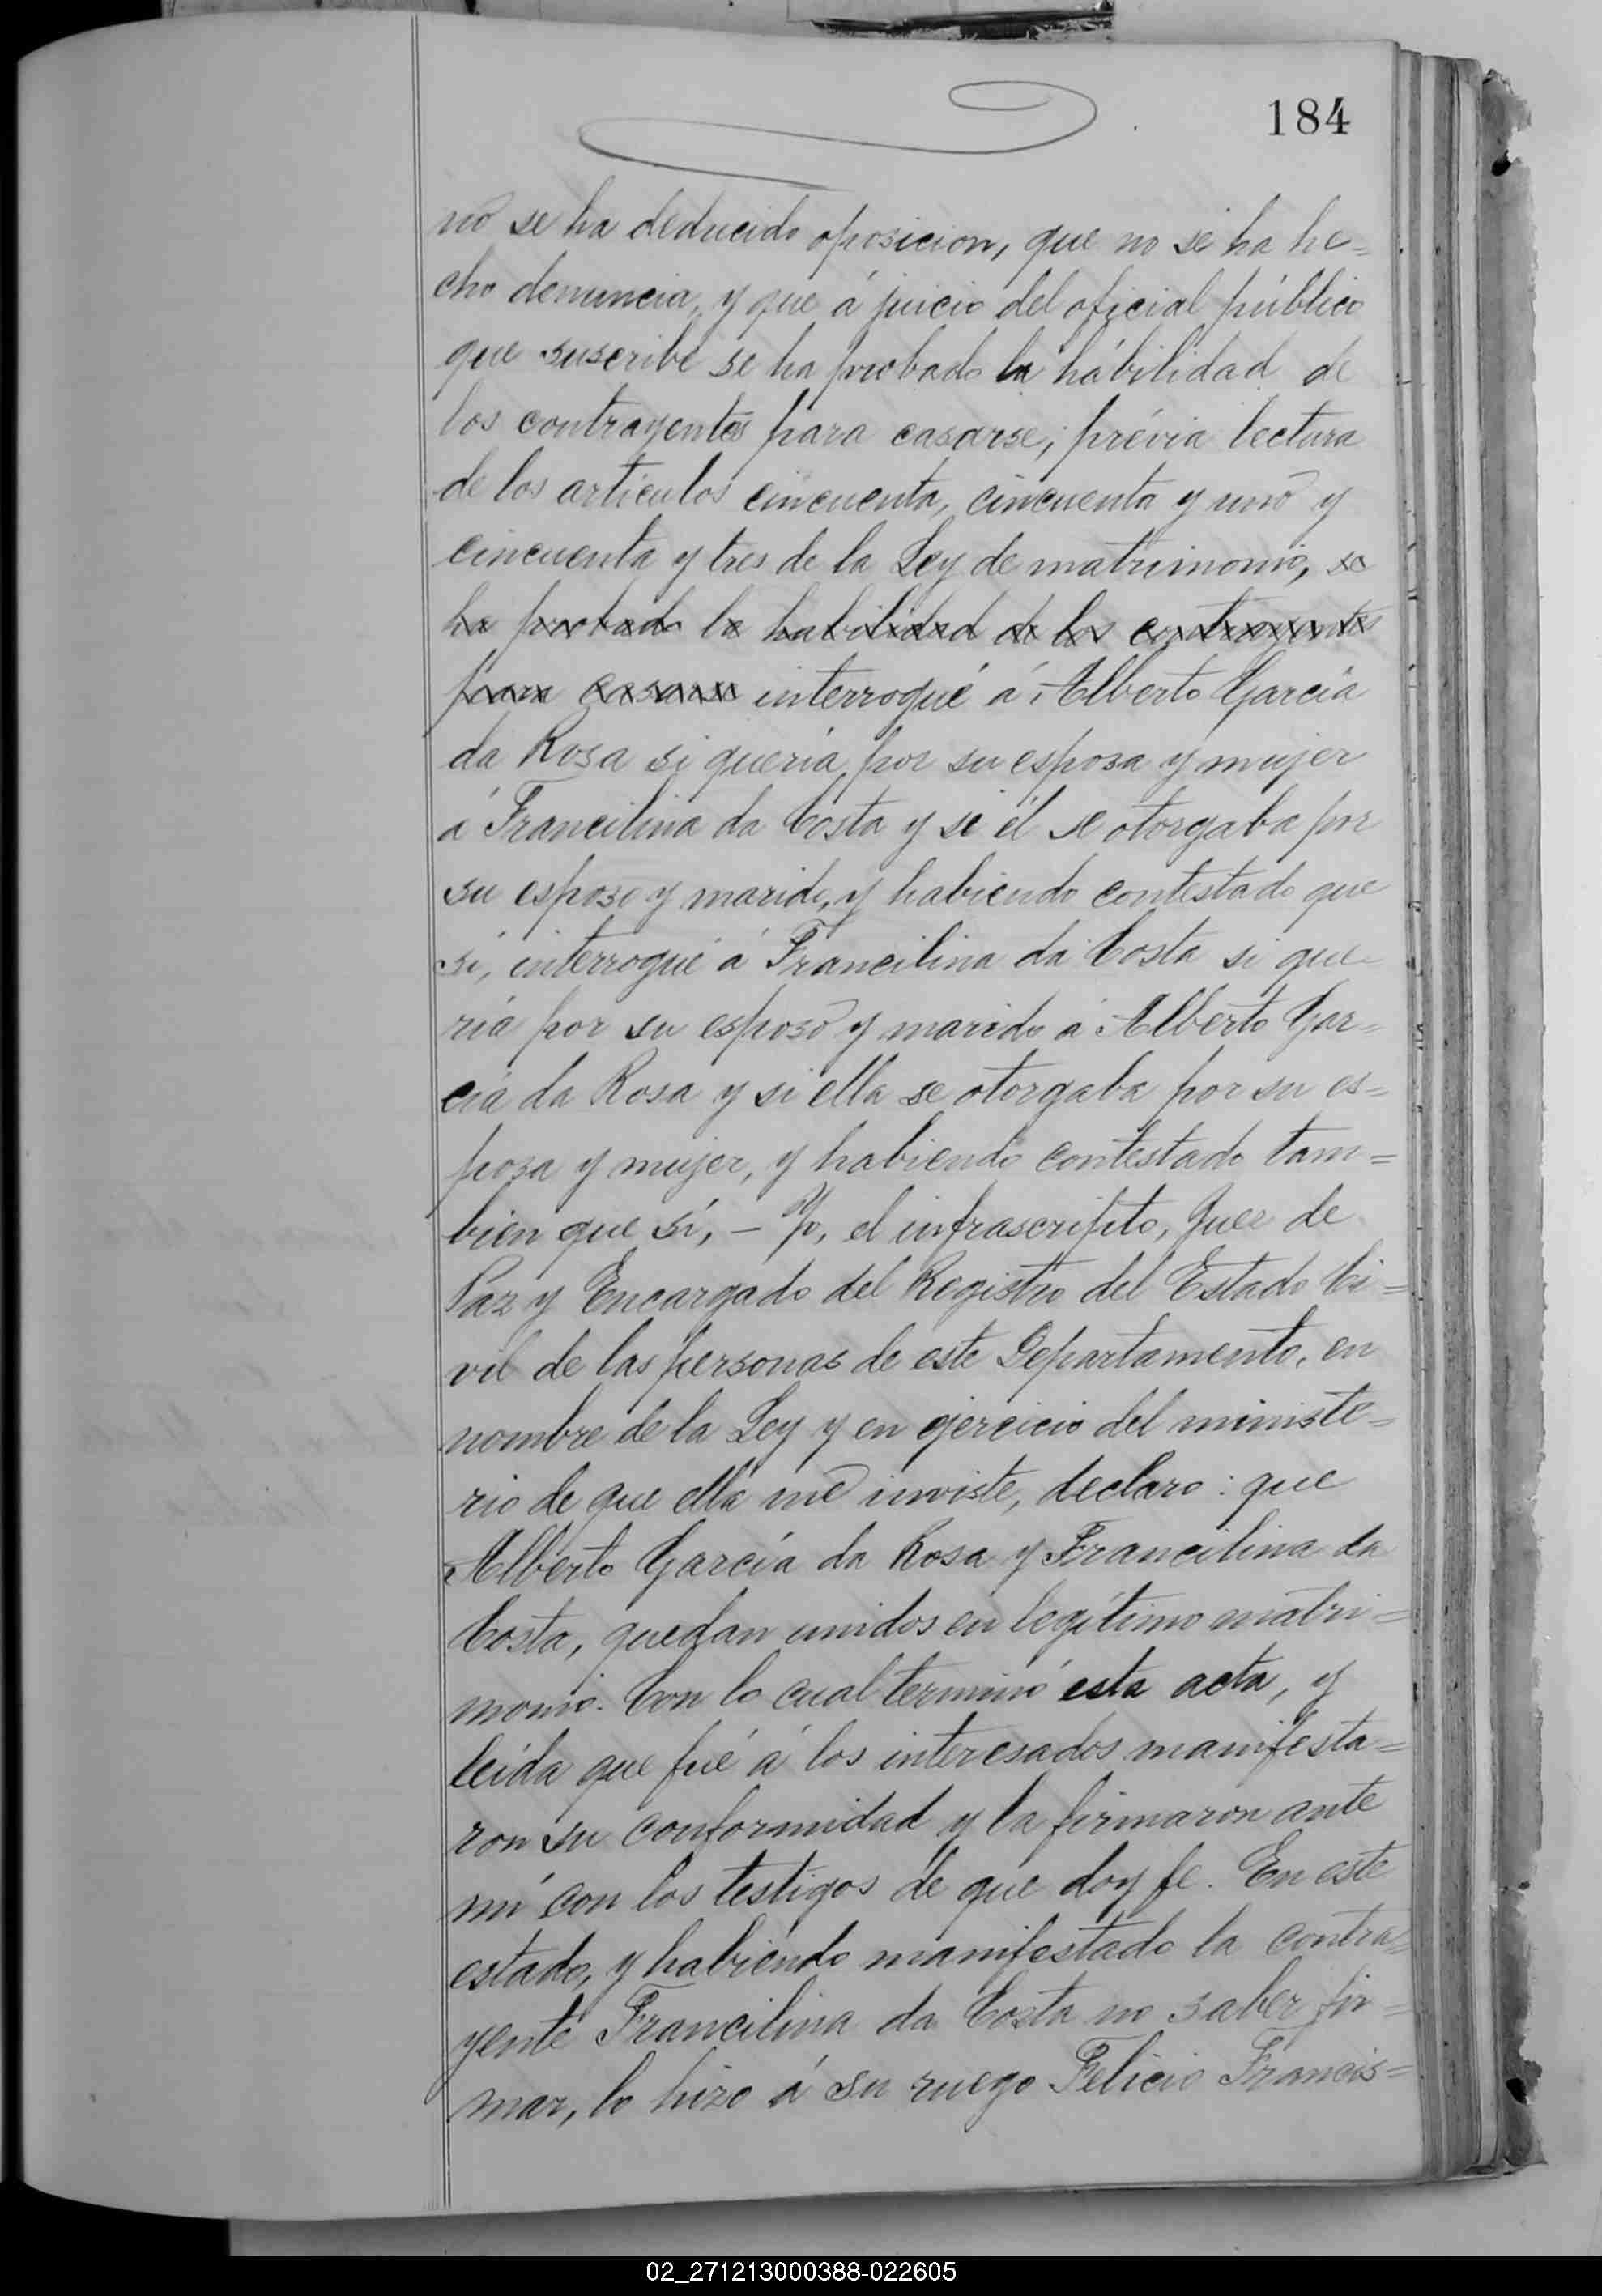 184
no se ha deducido oposicion, que no se ha he=
cho denuncia, y que á juicio del oficial público
que suscribe se ha probado la habilidad de
los contrayentes para casarse; prévia lectura
de los artículos cincuenta, cincuenta y uno y
cincuenta y tres de la Ley de matrimonio, se
ha probado la habilidad de los contrayentes
para casarse interrogué á Alberto García
da Rosa si quería por su esposa y mujer
á Francilina da Costa y si él se otorgaba por
su esposo y marido, y habiendo contestado que
sí, interrogué á Francilina da Costa si que-
ría por su esposo y marido á Alberto Gar=
cía da Rosa y si ella se otorgaba por su es=
posa y mujer, y habiendo contestado tam=
bien que sí, – Yo, el infrascripto, Juez de
Paz y Encargado del Registro del Estado Ci=
vil de las personas de este Departamento, en
nombre de la Ley y en ejercicio del ministe=
rio de que ella me inviste, declaro: que
Alberto García da Rosa y Francilina da
Costa, quedan unidos en legítimo matri=
monio. Con lo cual terminó esta acta, y
leida que fué á los interesados manifesta=
ron su conformidad y la firmaron ante
mí con los testigos de que doy fe. En este
estado, y habiendo manifestado la contra=
yente Francilina da Costa no saber fir=
mar, lo hizo á su ruego Felicio Francis=
02_271213000388-022605